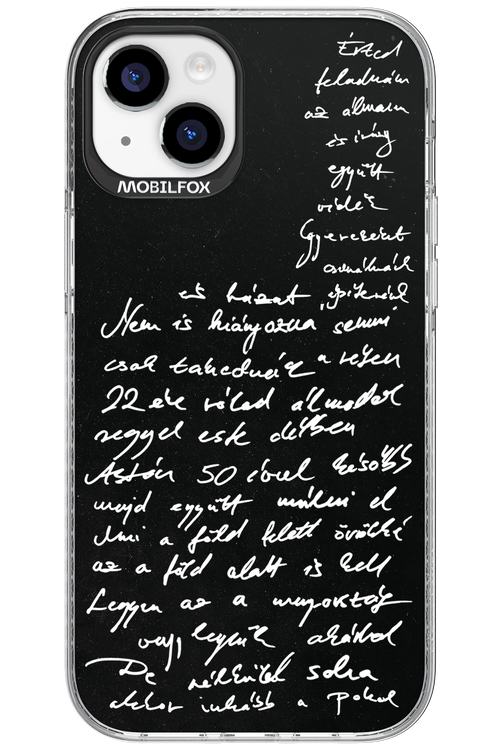 MOBILFOX
Érted
feladnám
az álmaim
és irány
együtt
vidék
Gyerekeket
csinálnánk
és házat építenénk
Nem is hiányozna semmi
csak a réten
22 éve rólad álmodok
reggel este délben
Aztán 50 évvel később
majd együtt múlni el
Ami a föld felett örökké
az a föld alatt is kell
Legyen az a mennyország
vagy legyünk akárhol
De nélküled soha
akkor inkább a Pokol